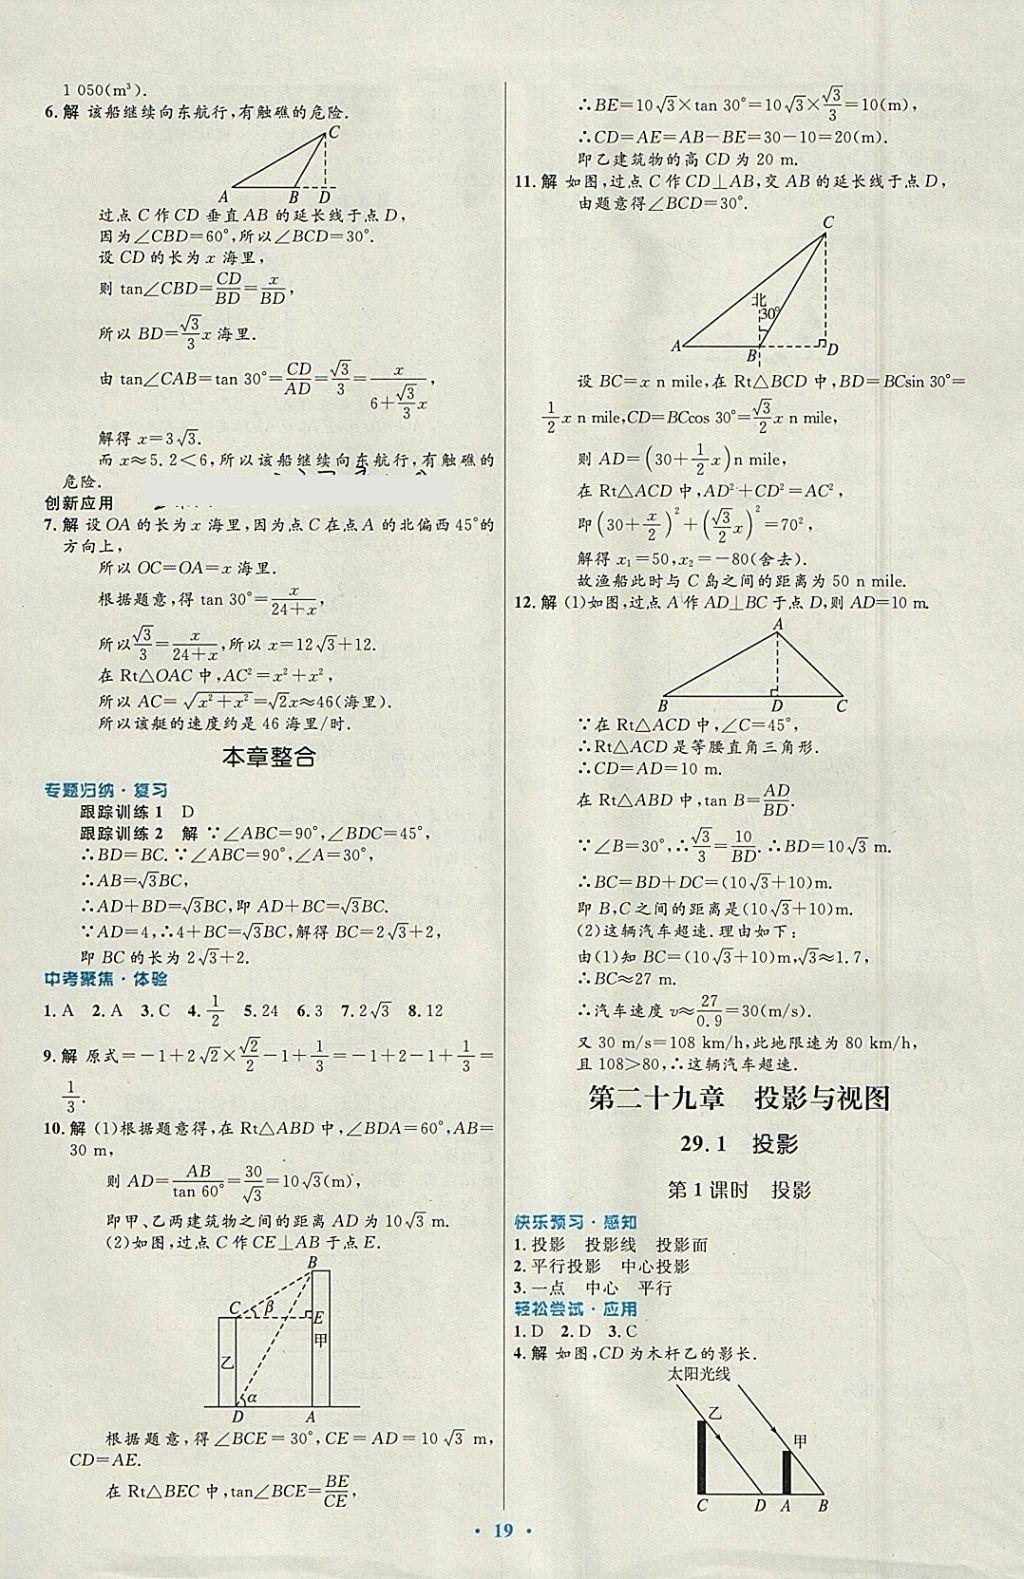 1 050(m³).
6.解 该船继续向东航行,有触礁的危险.
C
A B D
过点 C 作 CD 垂直 AB 的延长线于点 D,
因为∠CBD=60°,所以∠BCD=30°.
设 CD 的长为 x 海里,
则 tan∠CBD=CD/BD=x/BD,
所以 BD=√3/3 x 海里.
由 tan∠CAB=tan 30°=CD/AD=√3/3=x/(6+√3/3 x),
解得 x=3√3.
而 x≈5.2<6,所以该船继续向东航行,有触礁的
危险.
创新应用
7.解 设 OA 的长为 x 海里,因为点 C 在点 A 的北偏西 45°的
方向上,
所以 OC=OA=x 海里.
根据题意,得 tan 30°=x/(24+x),
所以√3/3=x/(24+x),所以 x=12√3+12.
在 Rt△OAC 中,AC²=x²+x²,
所以 AC=√(x²+x²)=√2x≈46(海里).
所以该艇的速度约是 46 海里/时.
本章整合
专题归纳·复习
跟踪训练 1 D
跟踪训练 2 解 ∵∠ABC=90°,∠BDC=45°,
∴BD=BC.∵∠ABC=90°,∠A=30°,
∴AB=√3BC,
∴AD+BD=√3BC,即 AD+BC=√3BC.
∵AD=4,∴4+BC=√3BC,解得 BC=2√3+2,
即 BC 的长为 2√3+2.
中考聚焦·体验
1.A 2.A 3.C 4.1/2 5.24 6.3 7.2√3 8.12
9.解 原式=-1+2√2×√2/2-1+1/3=-1+2-1+1/3=
1/3.
10.解 (1)根据题意得,在 Rt△ABD 中,∠BDA=60°,AB=
30 m,
则 AD=AB/tan 60°=30/√3=10√3(m),
即甲、乙两建筑物之间的距离 AD 为 10√3 m.
(2)如图,过点 C 作 CE⊥AB 于点 E.
B
C β E
甲
乙
α
D A
根据题意,得∠BCE=30°,CE=AD=10√3 m,
CD=AE.
在 Rt△BEC 中,tan∠BCE=BE/CE,
∴BE=10√3×tan 30°=10√3×√3/3=10(m),
∴CD=AE=AB-BE=30-10=20(m).
即乙建筑物的高 CD 为 20 m.
11.解 如图,过点 C 作 CD⊥AB,交 AB 的延长线于点 D,
由题意得∠BCD=30°.
C
北
30°
A B D
设 BC=x n mile,在 Rt△BCD 中,BD=BCsin 30°=
1/2 x n mile,CD=BCcos 30°=√3/2 x n mile,
则 AD=(30+1/2 x)n mile,
在 Rt△ACD 中,AD²+CD²=AC²,
即(30+x/2)²+(√3/2 x)²=70²,
解得 x₁=50,x₂=-80(舍去).
故渔船此时与 C 岛之间的距离为 50 n mile.
12.解 (1)如图,过点 A 作 AD⊥BC 于点 D,则 AD=10 m.
A
B D C
∵在 Rt△ACD 中,∠C=45°,
∴Rt△ACD 是等腰直角三角形.
∴CD=AD=10 m.
在 Rt△ABD 中,tan B=AD/BD.
∵∠B=30°,∴√3/3=10/BD.∴BD=10√3 m.
∴BC=BD+DC=(10√3+10)m.
即 B,C 之间的距离是(10√3+10)m.
(2)这辆汽车超速.理由如下:
由(1)知 BC=(10√3+10)m,√3≈1.7,
∴BC≈27 m.
∴汽车速度 v≈27/0.9=30(m/s).
又 30 m/s=108 km/h,此地限速为 80 km/h,
且 108>80,∴这辆汽车超速.
第二十九章 投影与视图
29.1 投影
第 1 课时 投影
快乐预习·感知
1.投影 投影线 投影面
2.平行投影 中心投影
3.一点 中心 平行
轻松尝试·应用
1.D 2.D 3.C
4.解 如图,CD 为木杆乙的影长.
太阳光线
乙
甲
C D A B
· 19 ·